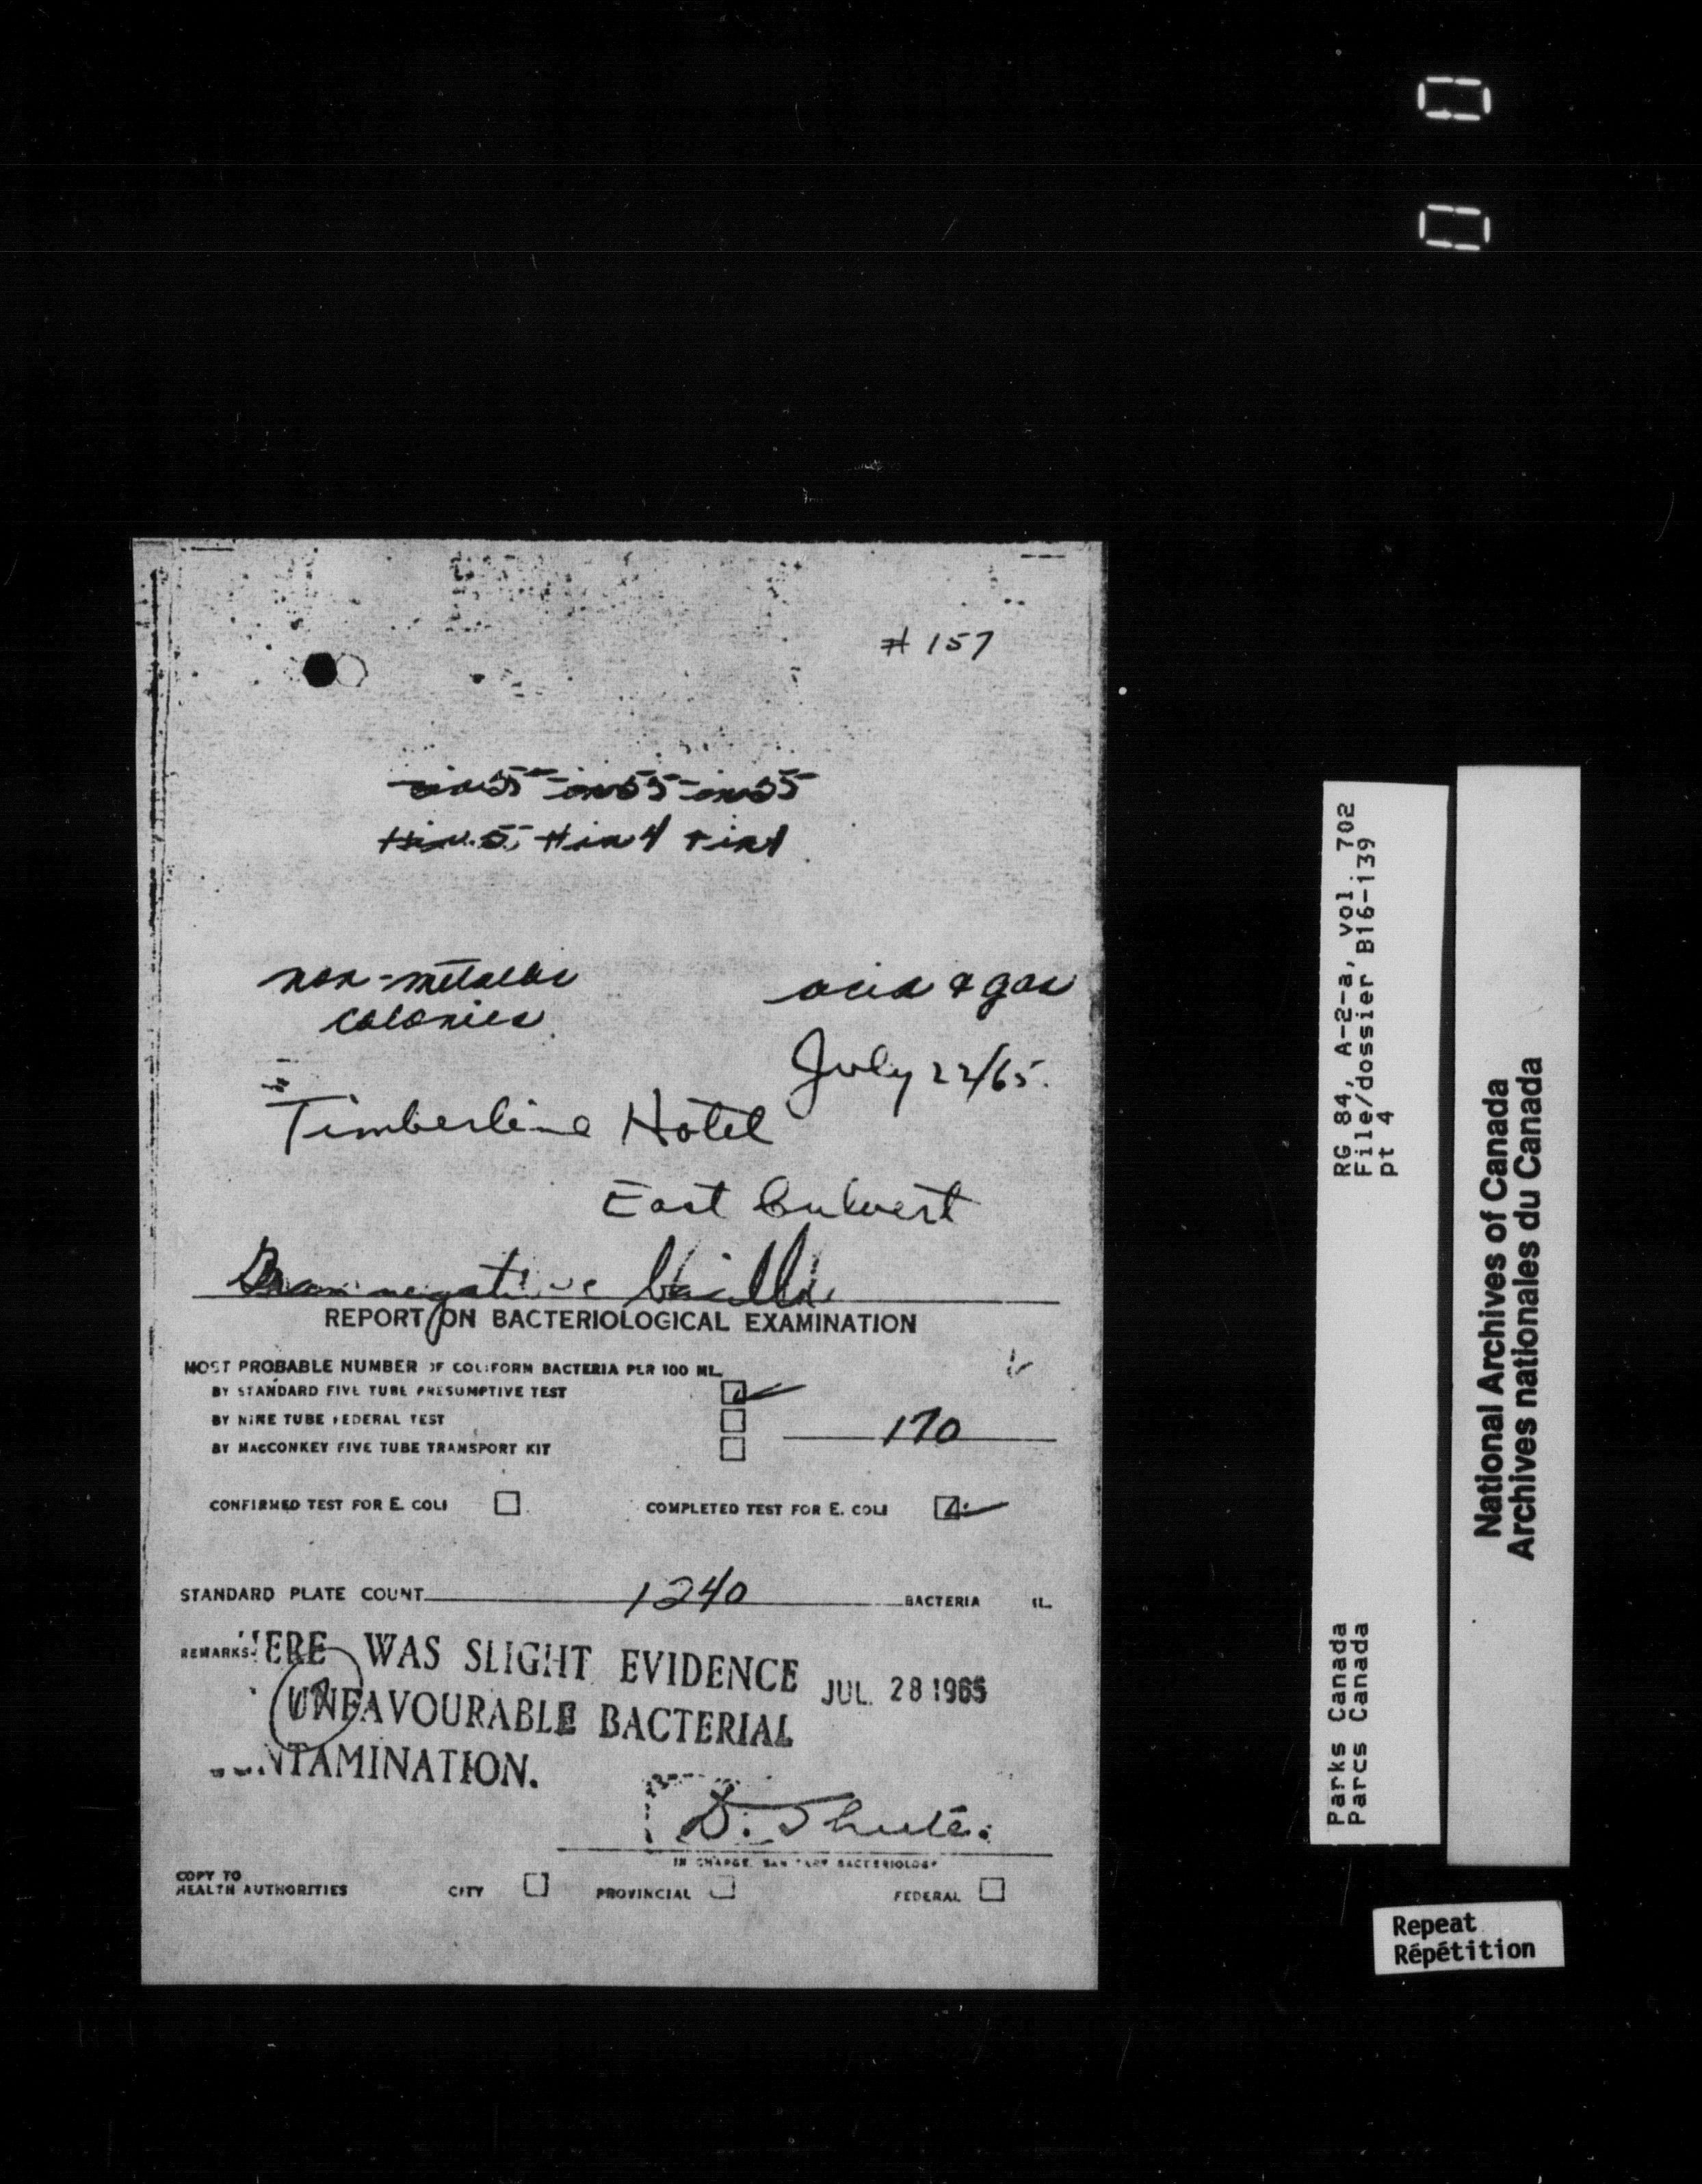 # 157
+ in 5, + in 4 + in 1
non-metallic
colonies
acid & gas
July 22/65.
Timberline Hotel
East Culvert
Gram negative bacilli
REPORT ON BACTERIOLOGICAL EXAMINATION
MOST PROBABLE NUMBER OF COLIFORM BACTERIA PER 100 ML.
BY STANDARD FIVE TUBE PRESUMPTIVE TEST
BY NINE TUBE FEDERAL TEST
170
BY MACCONKEY FIVE TUBE TRANSPORT KIT
CONFIRMED TEST FOR E. COLI COMPLETED TEST FOR E. COLI
STANDARD PLATE COUNT 1240 BACTERIA
REMARKS: HERE WAS SLIGHT EVIDENCE
JUL. 28 1965
UNFAVOURABLE BACTERIAL
NTAMINATION.
D. Shute.
IN CHARGE, SANITARY BACTERIOLOGY
COPY TO
HEALTH AUTHORITIES CITY PROVINCIAL FEDERAL
RG 84, A-2-a, vol. 702
File/dossier B16-139
pt 4
Parks Canada
Parcs Canada
National Archives of Canada
Archives nationales du Canada
Repeat
Répétition